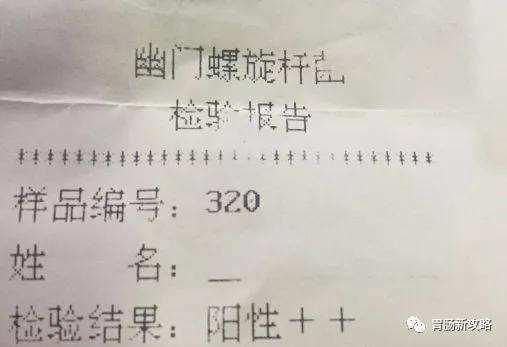 幽门螺旋杆菌
检验报告
******************************
样品编号：320
姓　　名：__
检验结果：阳性＋＋
胃肠新攻略